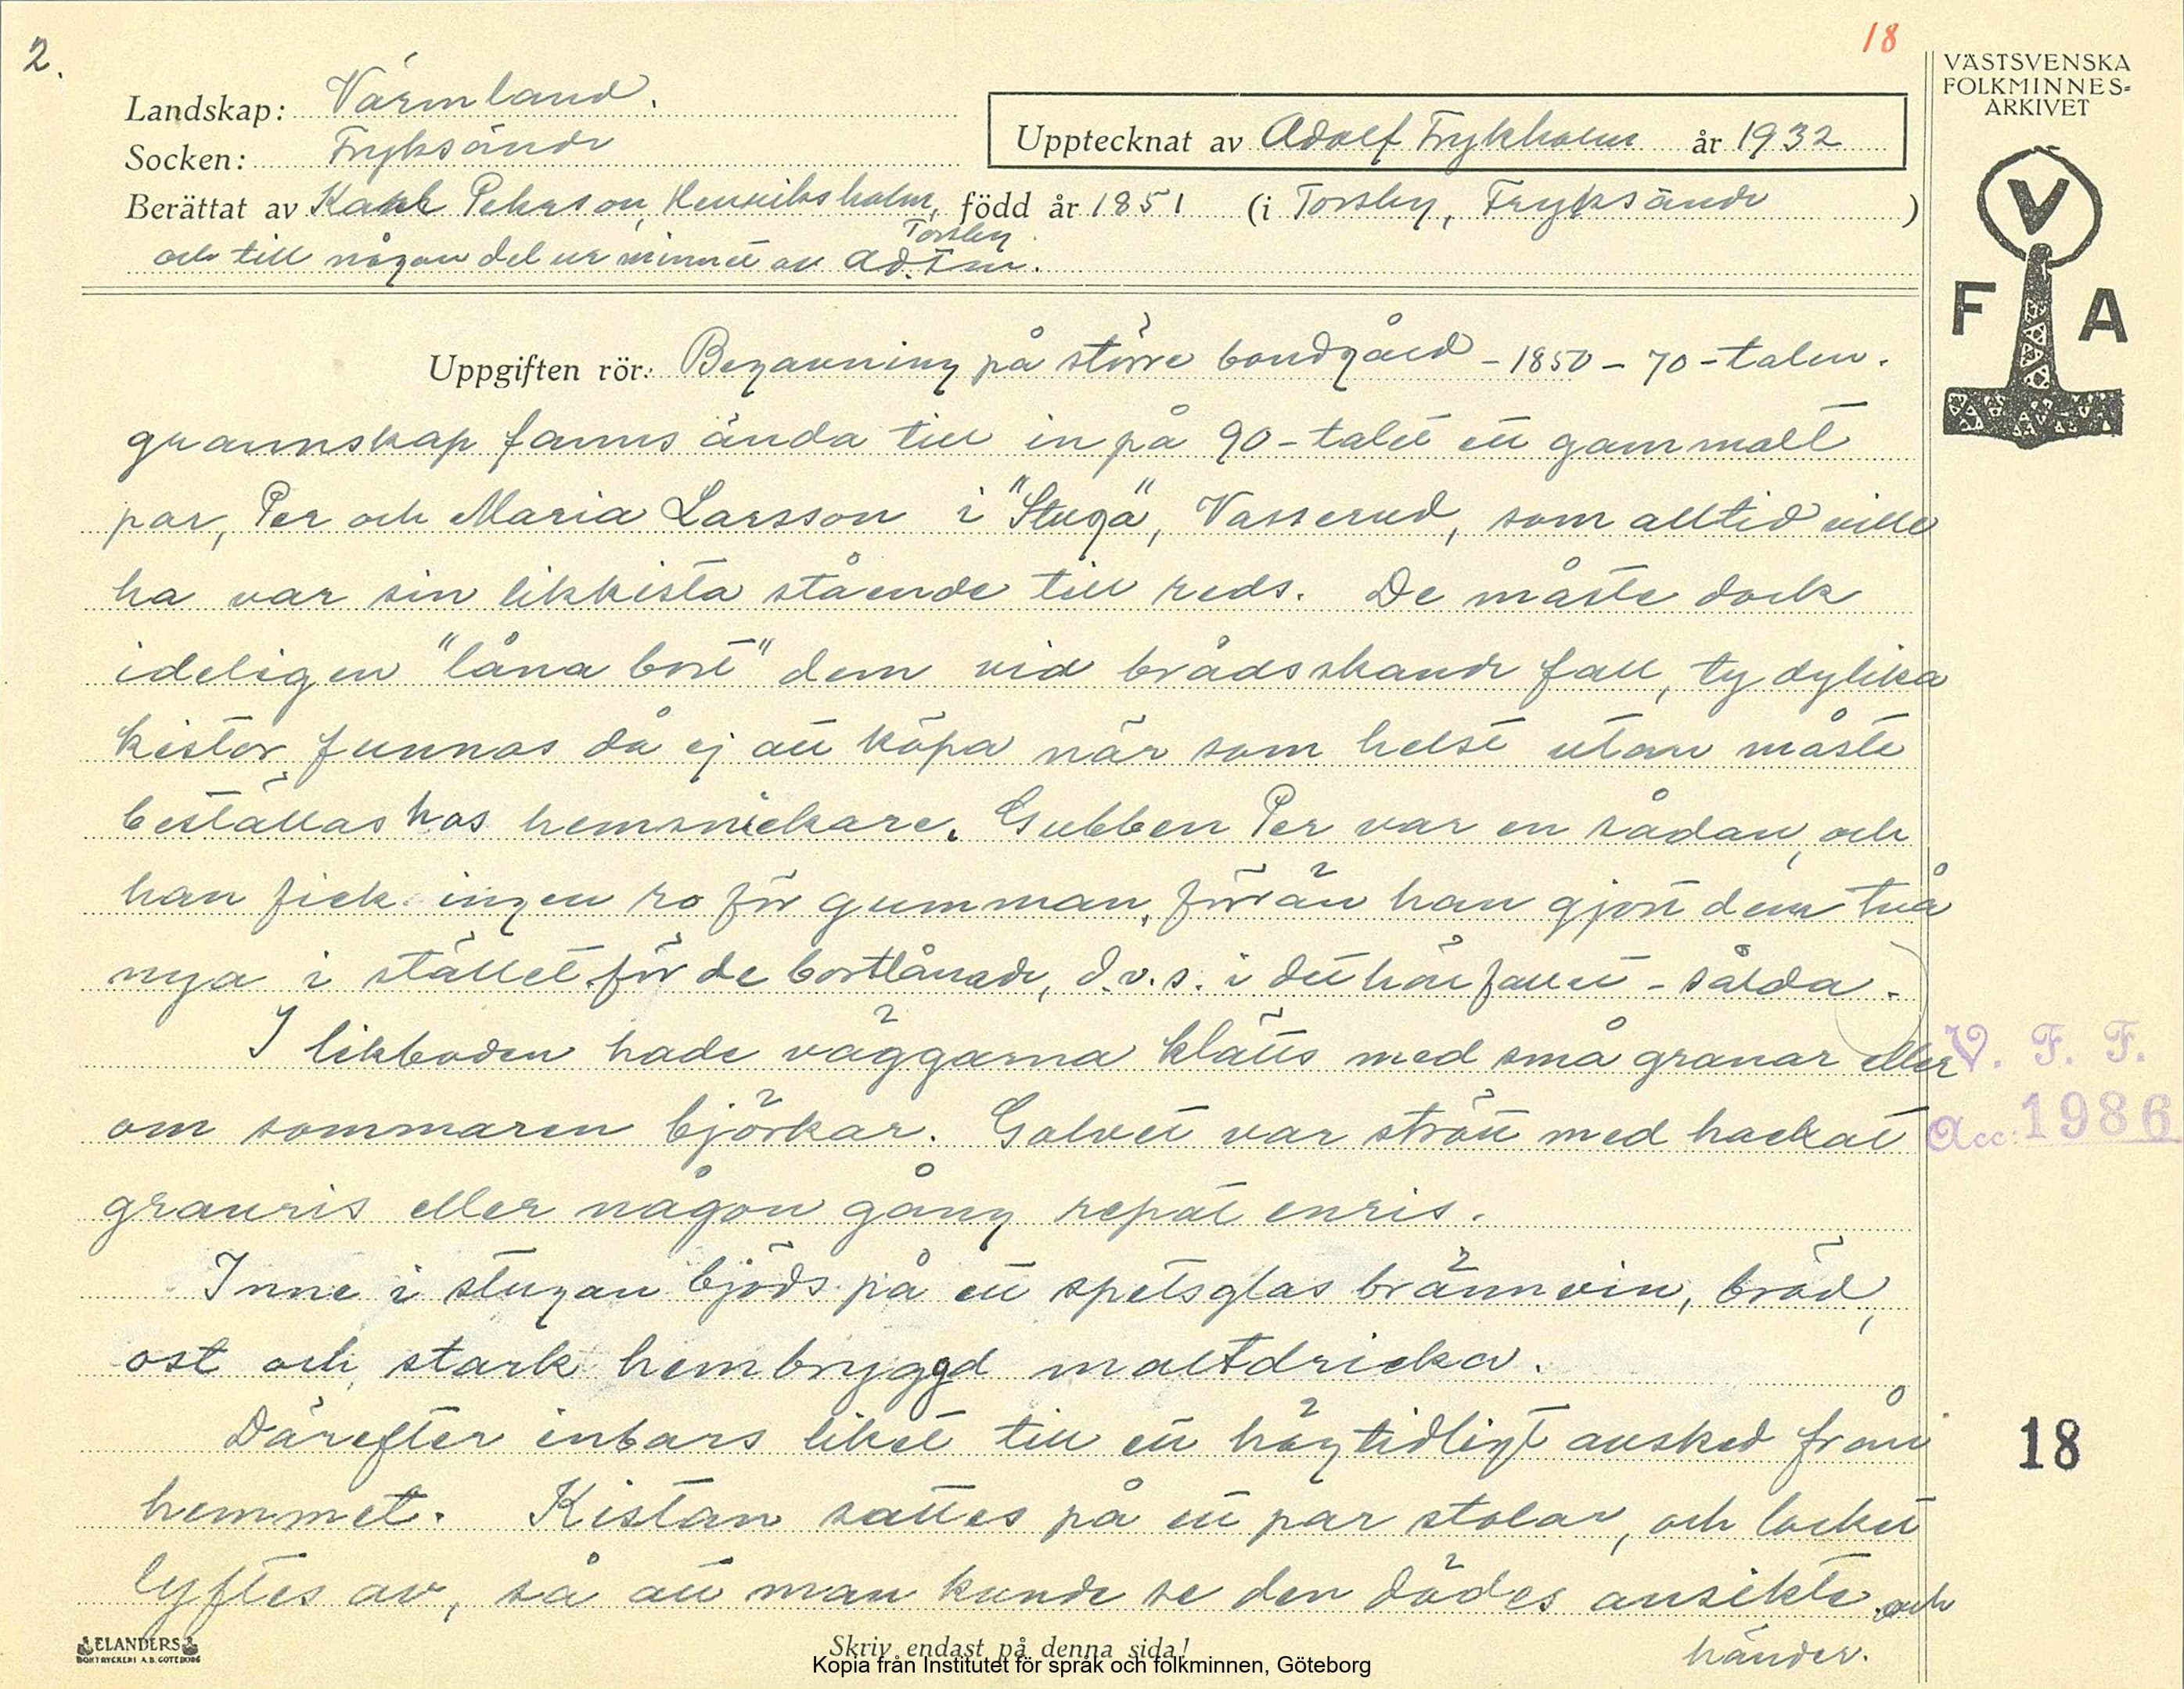 2.
18
VÄSTSVENSKA
FOLKMINNES-
ARKIVET
Landskap: Värmland.
Socken: Fryksände
Upptecknat av Adolf Frykholm år 1932
Berättat av Karl Persson, Henriksholm, född år 1851 (i Torsby, Fryksände )
Torsby
och till någon del ur minnet av Ad. Fm.
V
F A
Uppgiften rör: Begravning på större bondgård – 1850 – 70-talen.
grannskap fanns ända till in på 90-talet ett gammalt
par, Per och Maria Larsson i "Stuga", Vasserud, som alltid ville
ha var sin likkista stående till reds. De måste dock
ideligen "låna bort" dem vid brådskande fall, ty dylika
kistor funnos då ej att köpa när som helst utan måste
beställas hos hemsnickare. Gubben Per var en sådan, och
han fick ingen ro för gumman, förrän han gjort dem två
nya i stället för de bortlånade, d.v.s. i det här fallet – sålda.
I likboden hade väggarna klätts med små granar eller
om sommaren björkar. Golvet var strött med hackat
granris eller någon gång repat enris.
V. F. F.
Acc: 1986
Inne i stugan bjöds på ett spetsglas brännvin, bröd,
ost och stark hembryggd maltdricka.
Därefter inbars liket till ett högtidligt avsked från
hemmet. Kistan sattes på ett par stolar, och locket
lyftes av, så att man kunde se den dödes ansikte och
händer.
18
ELANDERS
BOKTRYCKERI A.B. GÖTEBORG
Skriv endast på denna sida!
Kopia från Institutet för språk och folkminnen, Göteborg